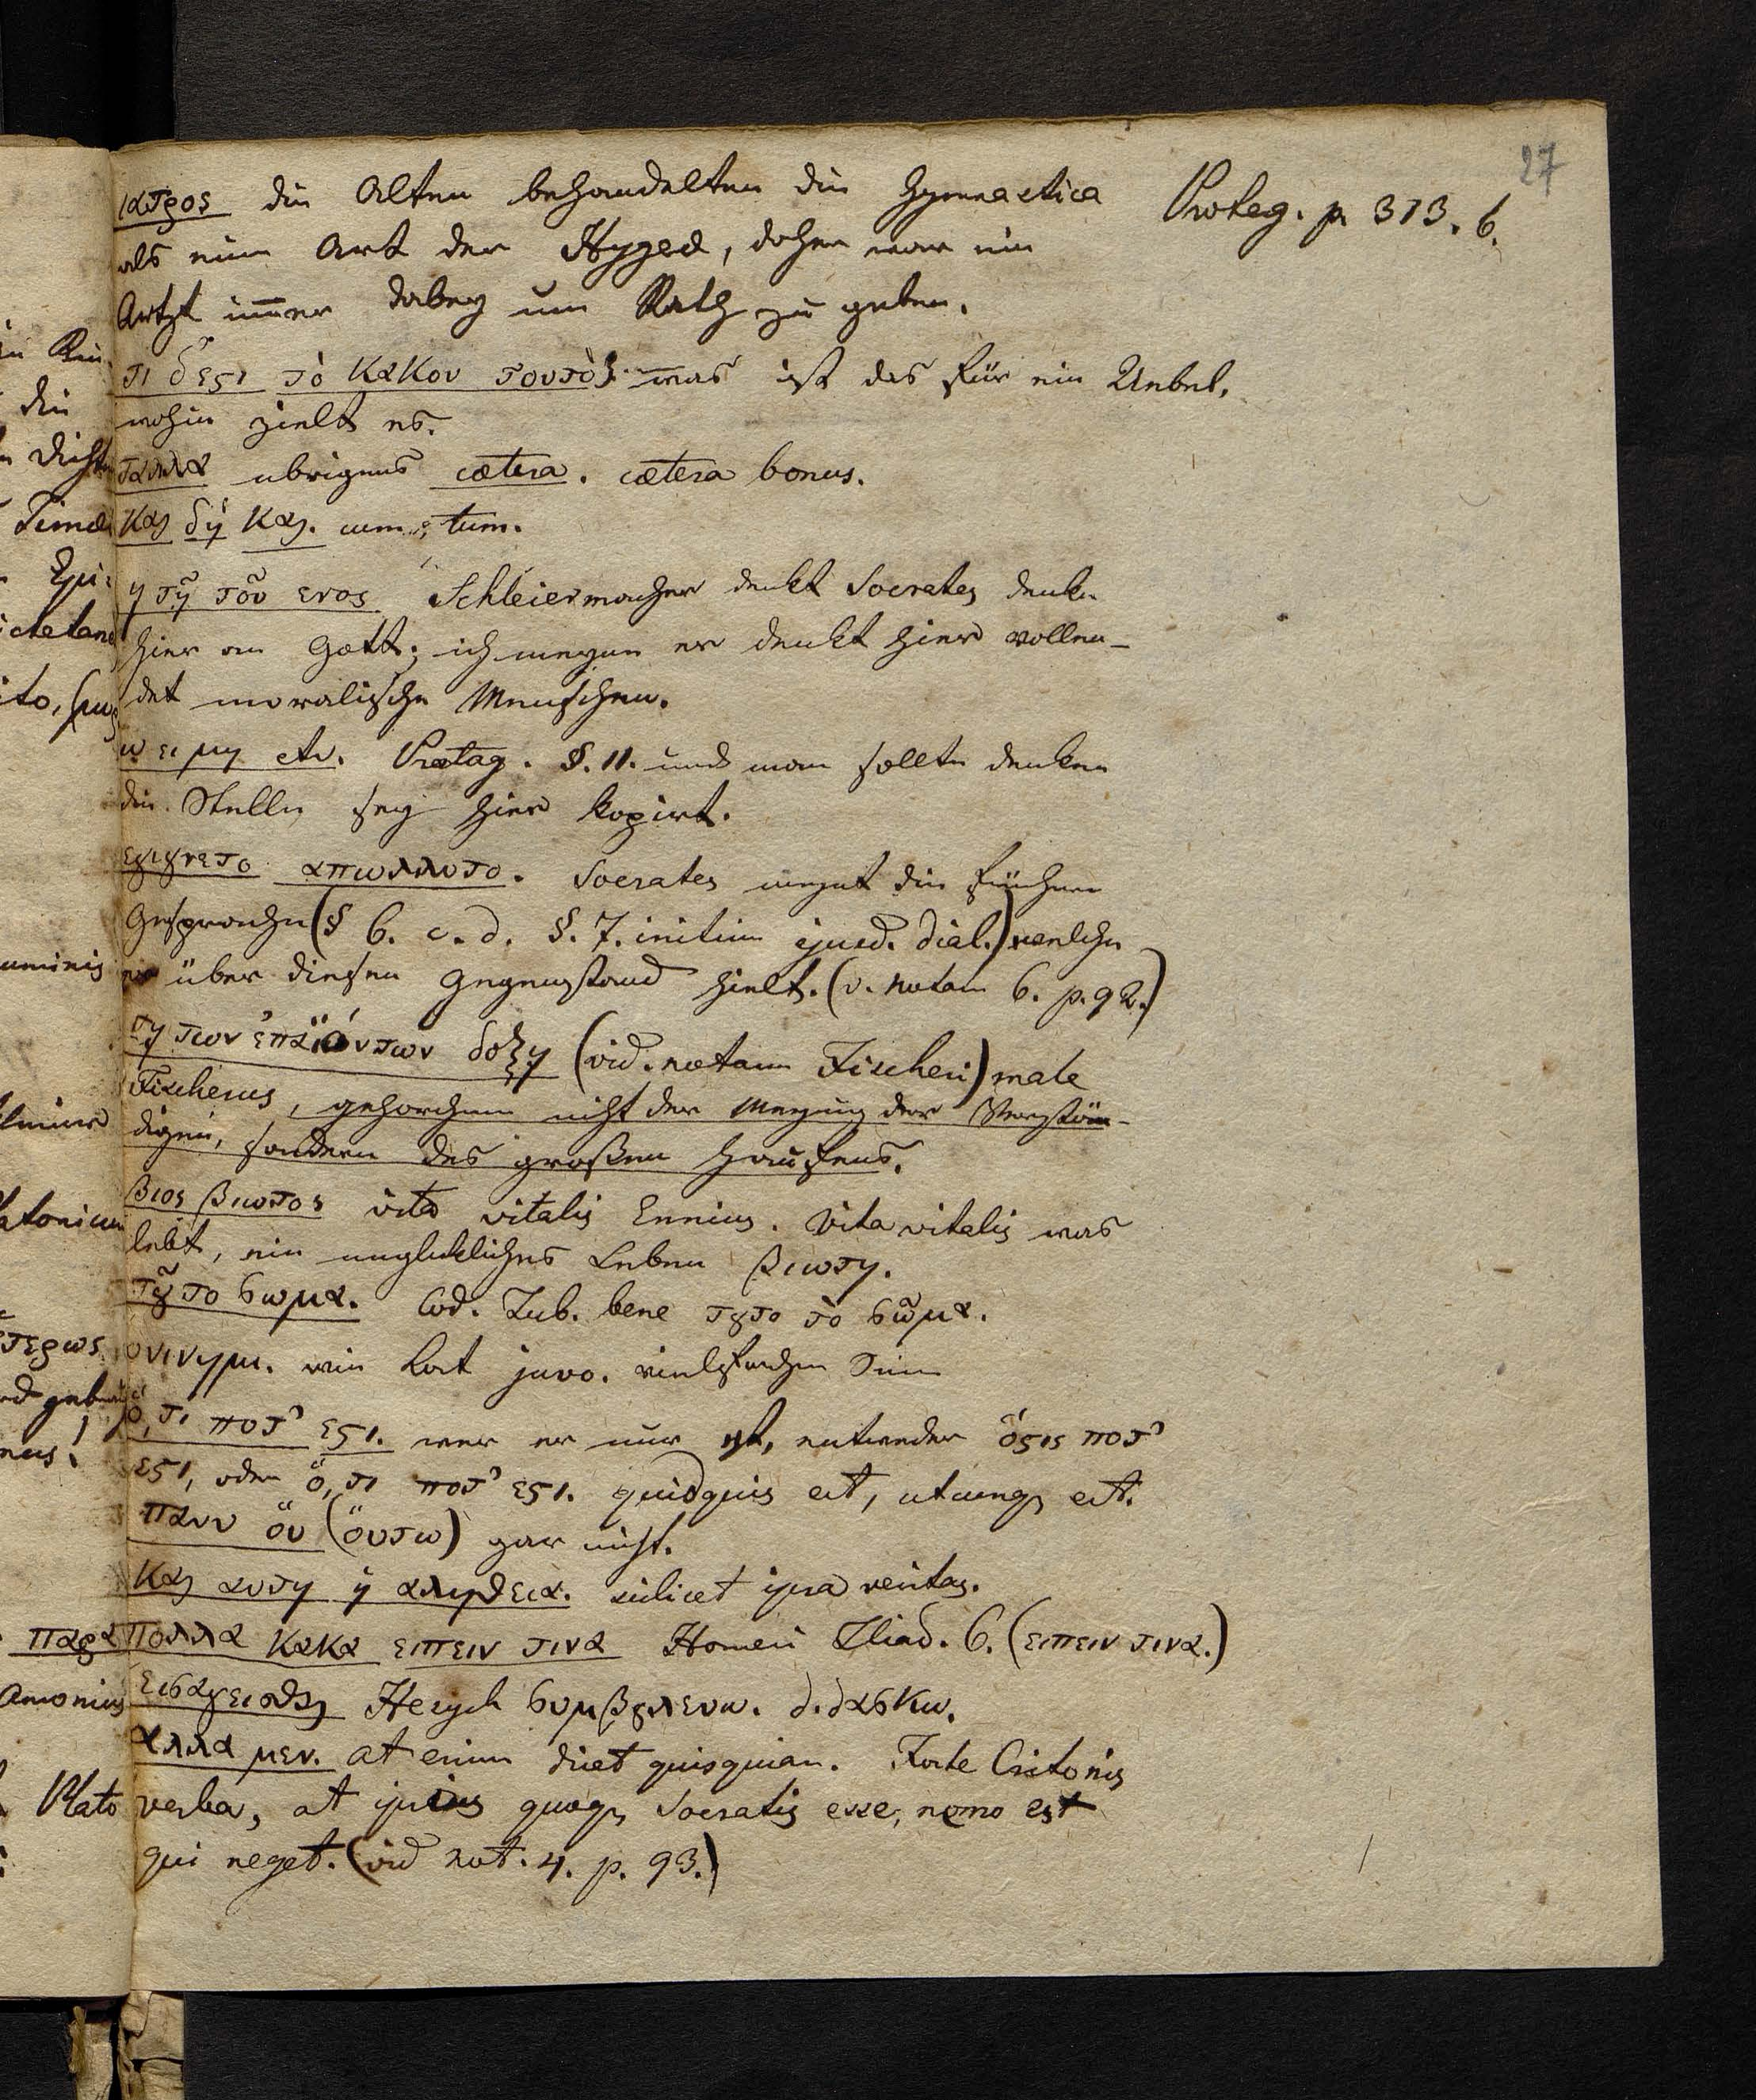 27
ιατρος die Alten behandelten die Gymnastica
Protag. p. 313. 6.
als eine Art der Hygea, daher war ein
Artzt im̅er dabey um Rath zu geben.
τι δ' εϛι τὸ κακον τουτο; was ist das für ein Uebel,
wohin zielt es.
ταλλα ubrigens cætera. cætera bonus.
και δὴ και. cum, tum.
η τῃ τοῦ ενος Schleiermacher denkt Socrates denke
hier an Gott; ich meyne er denkt hier vollen-
det moralische Menschen.
ω ει μη etc. Protag. §. 11. und man sollte denken
die Stelle sey hier kopirt.
εγιγνετο απωλλυτο. Socrates meynt die früheren
Gespräche (§ 6. c. d. §. 7. initium ejusd. dial.) welche
er über diesen Gegenstand hielt. (v. notam 6. p. 92.)
τῃ των ἐπαϊόντων δοξῃ (vid. notam Fischeri) male
Fischerus, gehorchen nicht der Meynung der Verstän-
digen, sondern des großen Haufens.
βιος βιωτος vita vitalis Ennius. Vita vitalis was
lebt, ein unglukliches Leben βιωτη.
τȣ͂ το σωμα. Cod. Tub. bene τȣτο τὸ σῶμα.
ονινημι. wie Lat juvo. vielfachen Sinn
ὅ, τι ποτ' εϛι. wer er nur ist, entweder ὅϛις ποτ'
εϛι, oder ὅ, τι ποτ' εϛι. quidquis est, utcunq est.
πανυ οὐ (οὐτω) gar nicht.
και αυτη ἡ αληθεια. scilicet ipsa veritas.
πολλα κακα ειπειν τινα Homeri Iliad. 6. (ειπειν τινα.)
εισαγεισθαι Hesych συμβȣλευω. διδασκω.
αλλα μεν. at enim dicet quisquian. Forte Critonis
verba, at ipsius quoq Socratis esse, nemo est
qui neget. (vid not. 4. p. 93.)